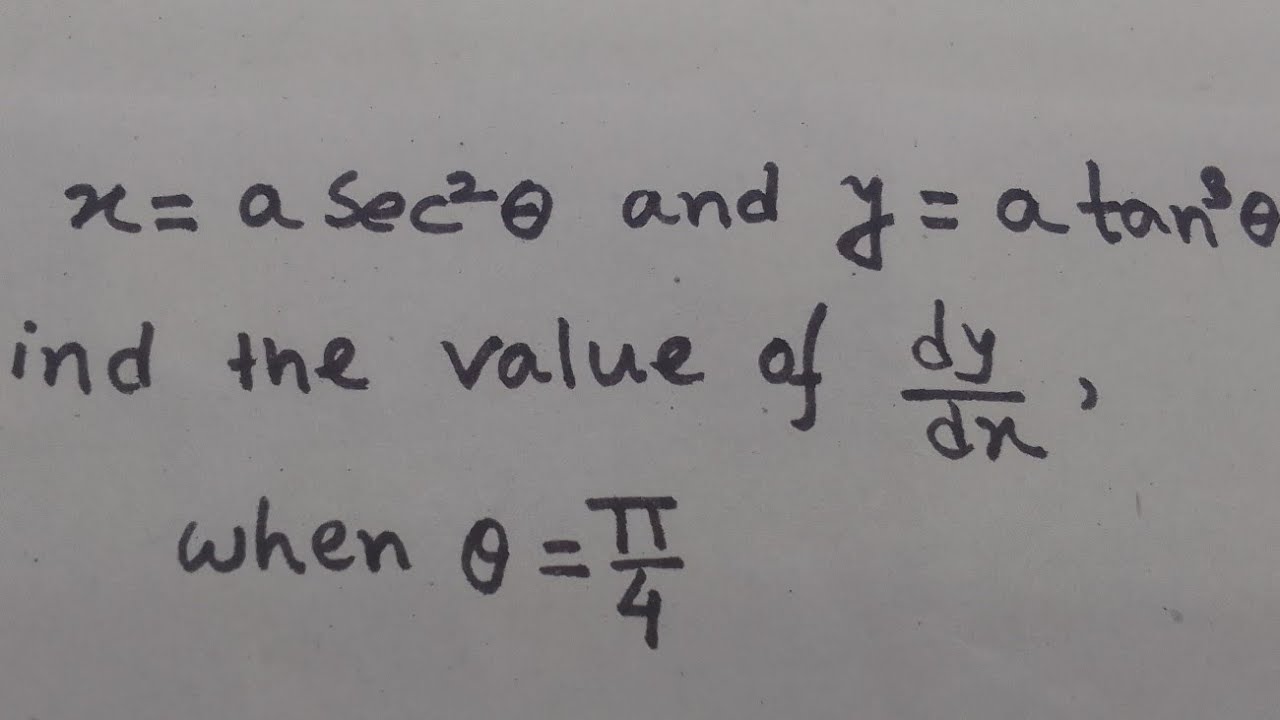 x = a sec²θ and y = a tan³θ
ind the value of dy/dx,
when θ = π/4